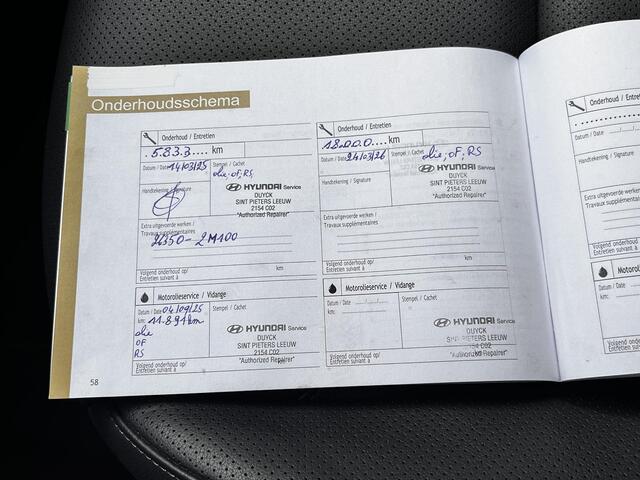 Onderhoudsschema
Onderhoud / Entretien
.5.8.3.3.... km
Datum / Date 14/03/25
Stempel / Cachet
olie; OF; RS
Handtekening / Signature
HYUNDAI Service
DUYCK
SINT PIETERS LEEUW
2154 C02
"Authorized Repairer"
Extra uitgevoerde werken /
Travaux supplémentaires
26350-2M100
Volgend onderhoud op/
Entretien suivant à
km
Motorolieservice / Vidange
Datum / Date 04/09/25
km: 11.891 km
Stempel / Cachet
olie
OF
RS
HYUNDAI Service
DUYCK
SINT PIETERS LEEUW
2154 C02
"Authorized Repairer"
Volgend onderhoud op/
Entretien suivant à
km
58
Onderhoud / Entretien
18.0.0.0.... km
Datum / Date 24/03/26
Stempel / Cachet
olie; OF; RS
Handtekening / Signature
HYUNDAI Service
DUYCK
SINT PIETERS LEEUW
2154 C02
"Authorized Repairer"
Extra uitgevoerde werken /
Travaux supplémentaires
Volgend onderhoud op/
Entretien suivant à
km
Motorolieservice / Vidange
Datum / Date
km:
Stempel / Cachet
HYUNDAI Service
DUYCK
SINT PIETERS LEEUW
2154 C02
"Authorized Repairer"
Volgend onderhoud op/
Entretien suivant à
km